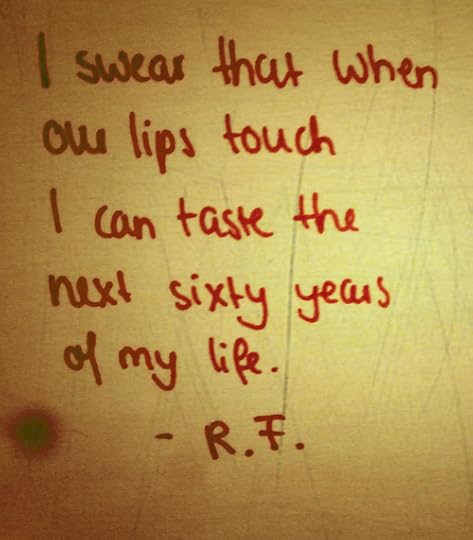 I swear that when
our lips touch
I can taste the
next sixty years
of my life.
- R.F.